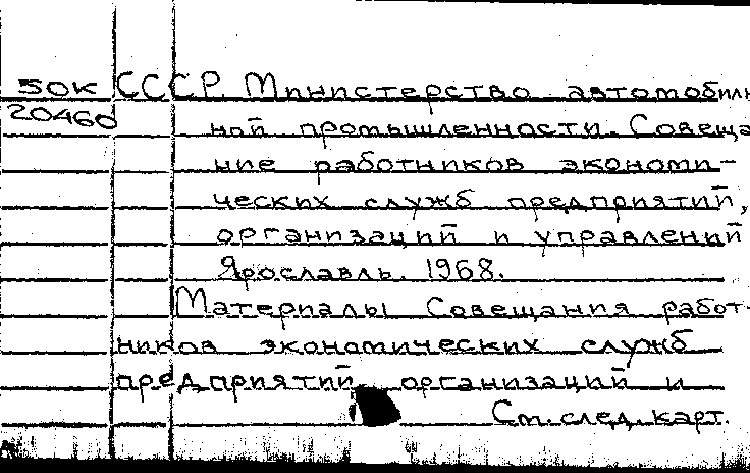 50К СССР. Министерство автомобиль
20460 ной промышленности. Совеща
ние работников экономи-
ческих служб предприятий,
организаций и управлений
Ярославль. 1968.
Материалы Совещания работ-
ников экономических служб
предприятий, организаций и
См. след. карт.